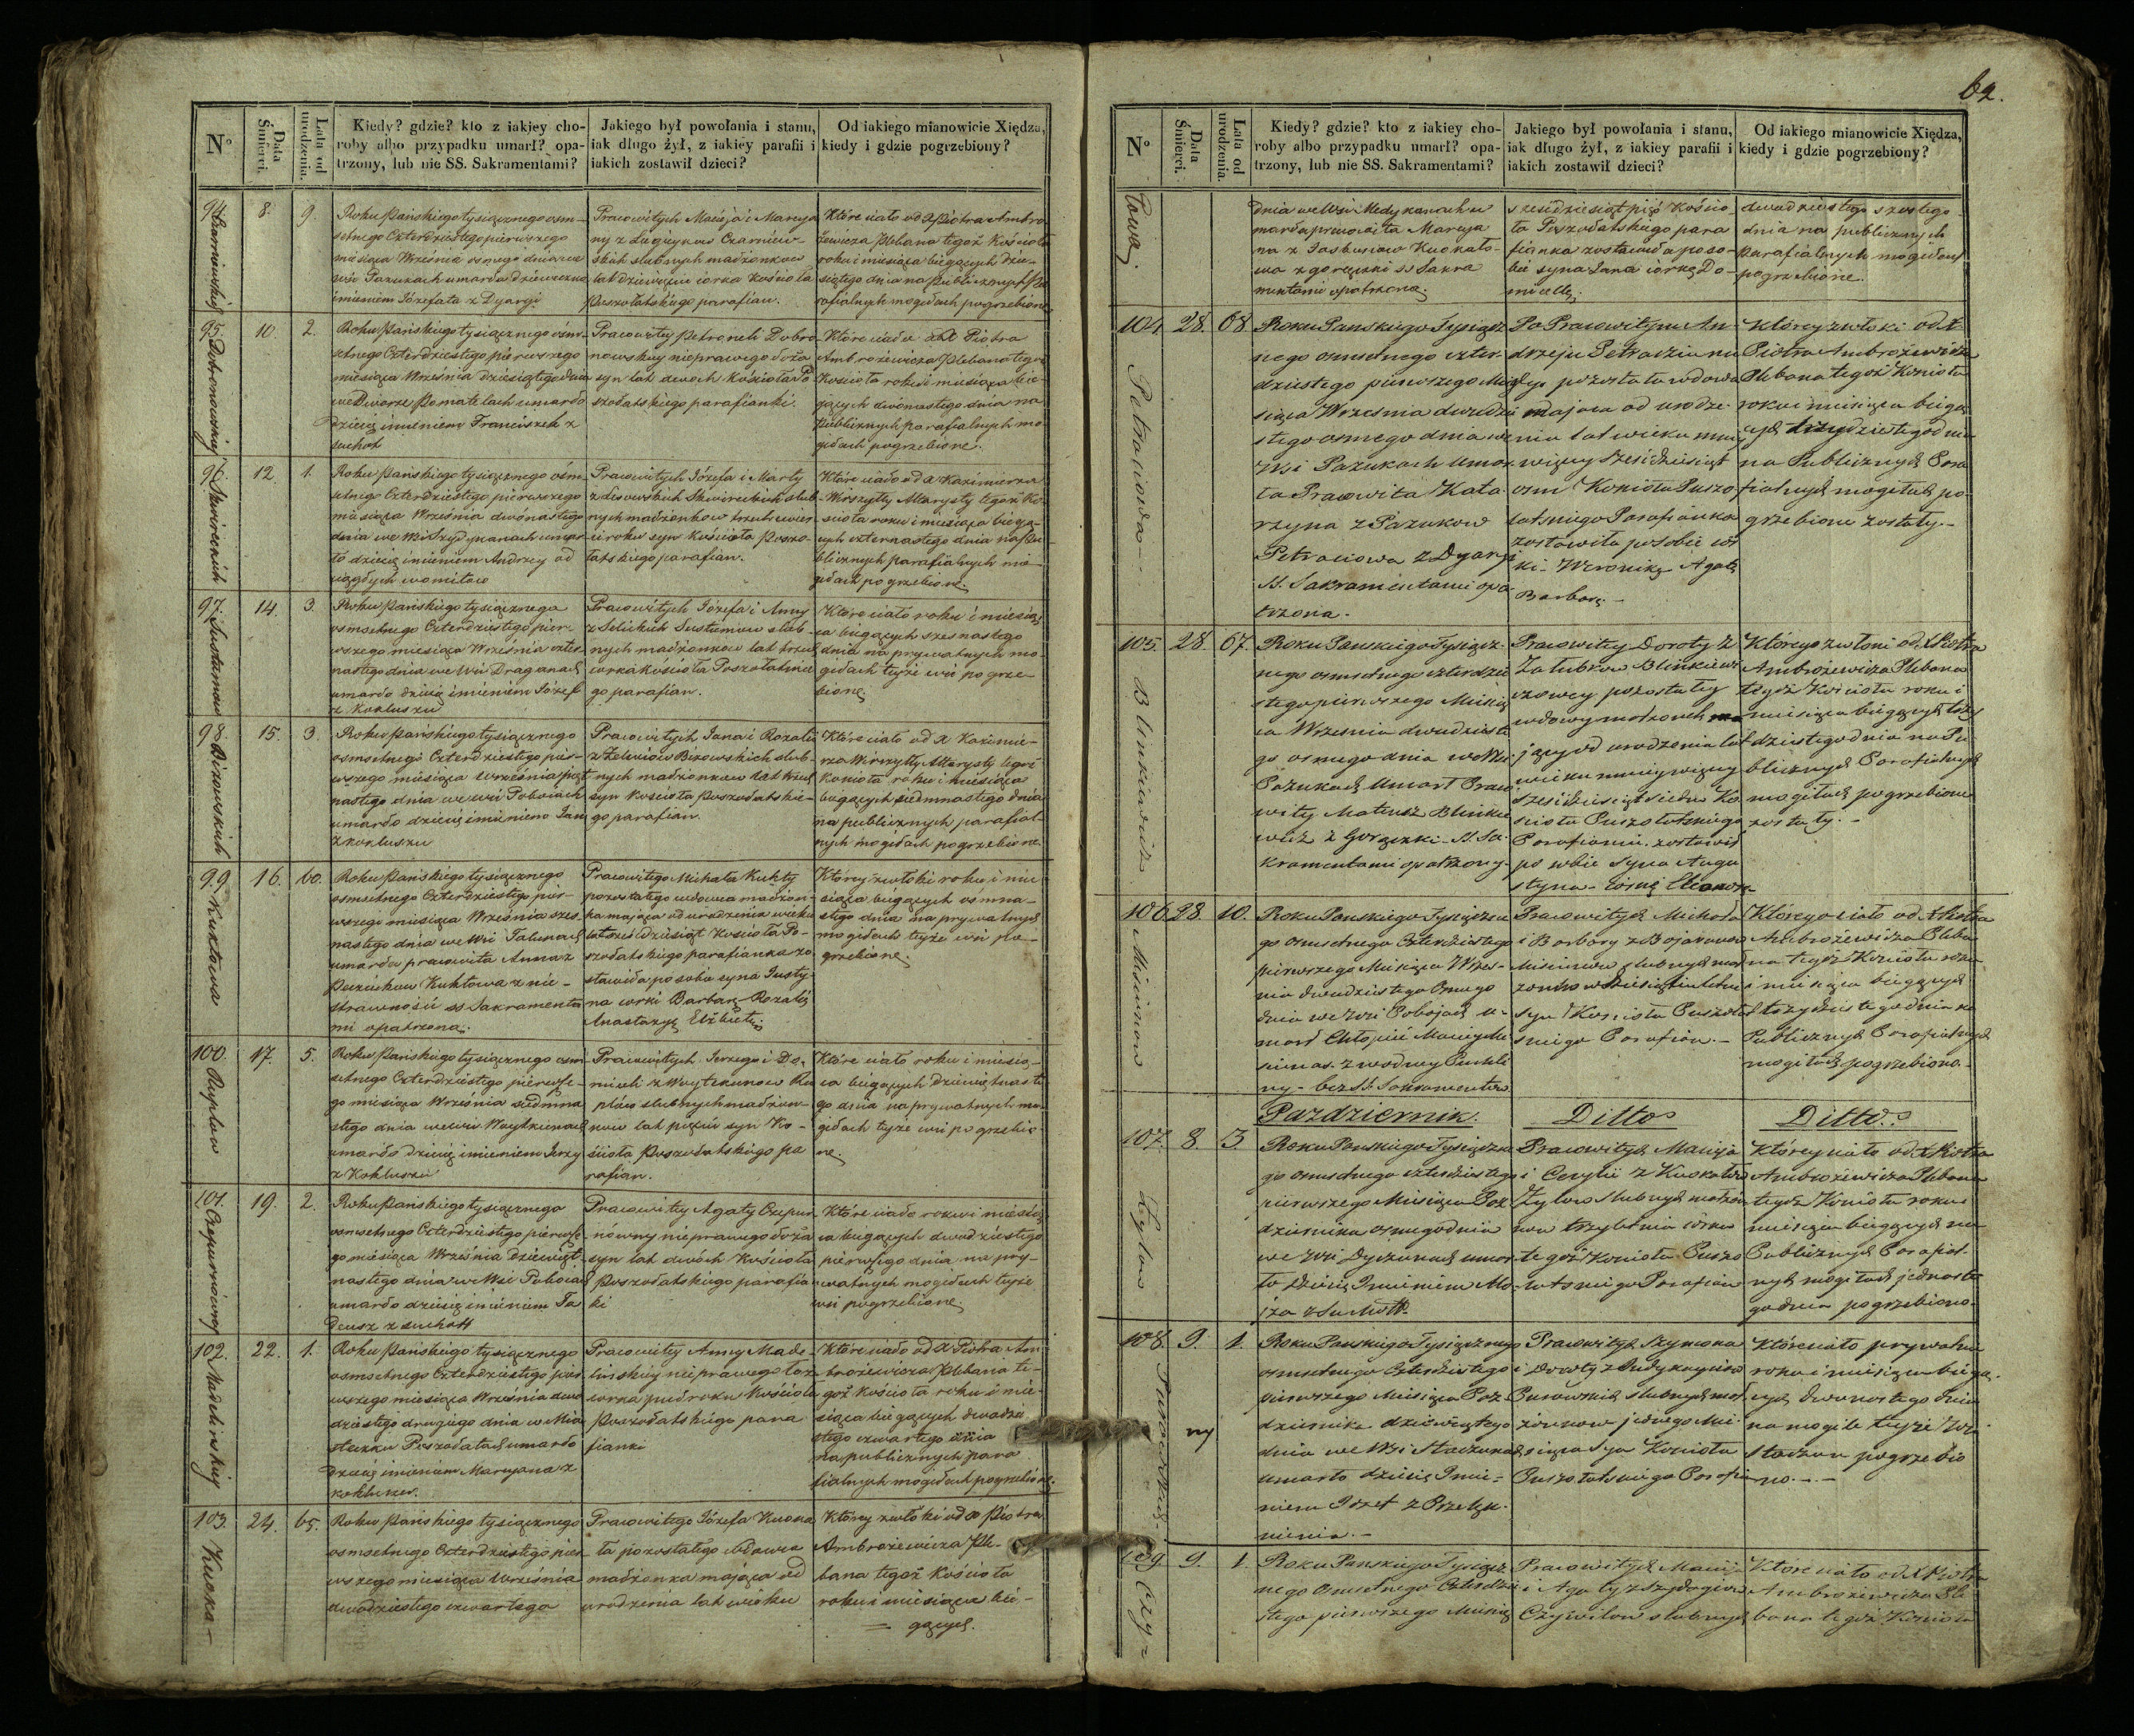 N°
Data Śmierci.
Lata od urodzenia.
Kiedy? gdzie? kto z iakiey cho-
roby albo przypadku umarł? opa-
trzony, lub nie SS. Sakramentami?
Jakiego był powołania i stanu,
iak długo żył, z iakiey parafii i
iakich zostawił dzieci?
Od iakiego mianowicie Xiędza,
kiedy i gdzie pogrzebiony?
94.
8.
9.
Roku Pańskiego tysiącznego osm-
setnego Czterdziestego pierwszego
miesiąca Września osmego dnia we
wsi Pazukach umarła dziewczyna
imieniem Józefata z Dyaryi
Pracowitych Macieja i Maryan
ny z Czarniew-
skich ślubnych małżonkow
lat dziewięciu córka Kościoła
Poszołatskiego parafian.
Które ciało od X Piotra Ambro
żewicza Plebana tegoż Kościoła
roku i miesiąca bieżących dzie-
siątego dnia na publicznych Pa
rafialnych mogiłach pogrzebione
95.
10.
2.
Roku Pańskiego tysiącznego osm-
setnego Czterdziestego pierwszego
miesiąca Września dziesiątego dnia
we Dworze umarło
dziecię imieniem Franciszek z
suchot
Pracowitey Petroneli Dobro-
nowskiey nieprawego łoża
syn lat dwoch Kościoła Po
szołatskiego parafianki.
Które ciało od X Piotra
Ambrożewicza Plebana tegoż
Kościoła roku i miesiąca bie-
żących dwónastego dnia na
publicznych parafialnych mo
giłach pogrzebione.
96.
12.
1.
Roku Pańskiego tysiącznego osm-
setnego Czterdziestego pierwszego
miesiąca Września dwónastego
dnia we Wsi umar-
ło dziecię imieniem Andrzey od
ciągłych womitow
Pracowitych Józefa i Marty
ślub-
nych małżonkow
roku syn Kościoła Poszo-
łatskiego parafian.
Które ciało od X Kazimierza
Mirszytty Altarysty tegoż Ko-
ścioła roku i miesiąca bieżą-
cych czternastego dnia na Pu
blicznych parafialnych mo
giłach pogrzebione.
97.
14.
3.
Roku Pańskiego tysiącznego
osmsetnego Czterdziestego pier-
wszego miesiąca Września czter-
nastego dnia we Wsi Draganach
umarło dziecię imieniem Józef
z Kokluszu
Pracowitych Józefa i Anny
ślub-
nych małżonkow lat trzech
córka Kościoła Poszołatskie
go parafian.
Które ciało roku i miesią
ca bieżących szesnastego
dnia na prywatnych mo-
giłach teyże wsi pogrze-
bione.
98.
15.
3.
Roku Pańskiego tysiącznego
osmsetnego Czterdziestego pier-
wszego miesiąca Września pięt
nastego dnia we wsi Poboiach
umarło dziecię imieniem Jan
z kokluszu
Pracowitych Jana i Rozalii
ślub-
nych małżonkow lat trzech
syn Kościoła Poszołatskie-
go parafian.
Które ciało od X Kazimie-
rza Mirszytty Altarysty tegoż
Kościoła roku i miesiąca
bieżących siedmnastego dnia
na publicznych parafial-
nych mogiłach pogrzebione
99
Kuktowa
16.
60.
Roku Pańskiego tysiącznego
osmsetnego Czterdziestego pier-
wszego miesiąca Września szes-
nastego dnia we Wsi
umarła pracowita Anna z
Kuktowa z nie-
strawności ss Sakramenta
mi opatrzona.
Pracowitego Michała Kukty
pozostałego wdowca małżon-
ka mająca od urodzenia wieku
lat sześćdziesiąt Kościoła Po-
szołatskiego parafianka zo
stawiła po sobie syna Justy
na corki Barbarę Rozalię
Anastazyę Elżbietę.
Którey zwłoki roku i mie
siąca bieżących ósmna-
stego dnia na prywatnych
mogiłach teyże wsi po-
grzebione.
100.
17.
5.
Roku Pańskiego tysiącznego osm
setnego Czterdziestego pierwsze-
go miesiąca Września siedmna
stego dnia we wsi
umarło dziecię imieniem Jerzy
z Kokluszu
Pracowitych Jerzego i Do-
ślubnych małżon-
kow lat pięciu syn Ko-
ścioła Poszołatskiego pa
rafian.
Które ciało roku i miesią-
ca bieżących dziewiętnaste
go dnia na prywatnych mo-
giłach teyże wsi pogrzebio-
ne.
101.
19.
2.
Roku Pańskiego tysiącznego
osmsetnego Czterdziestego pierwsze
go miesiąca Września dziewięt
nastego dnia we Wsi Poboiach
umarło dziecię imieniem Ta
deusz z suchott
Pracowitey Agaty Czepur
nówny nieprawego łoża
syn lat dwóch Kościoła
Poszołatskiego parafian
ki
Które ciało roku i miesią
ca bieżących dwudziestego
pierwszego dnia na pry-
watnych mogiłach teyże
wsi pogrzebione
102.
22.
1.
Roku Pańskiego tysiącznego
osmsetnego Czterdziestego pier
wszego miesiąca Września dwu
dziestego drugiego dnia w Mia
steczku Poszołatach umarło
dziecię imieniem Maryanna z
kokluszu.
Pracowitey Anny Made-
lińskiey nieprawego łoża
córka roku Kościoła
Poszołatskiego para
fianki
Które ciało od X Piotra Am
brożewicza Plebana te-
goż Kościoła roku i mie-
siąca bieżących dwudzie
stego czwartego dnia
na publicznych para
fialnych mogiłach pogrzebione.
103.
24.
65.
Roku Pańskiego tysiącznego
osmsetnego Czterdziestego pier
wszego miesiąca Września
dwudziestego czwartego
Pracowitego Józefa Kuoka
ta pozostałego wdowca
małżonka mająca od
urodzenia lat wieku
Którey zwłoki od X Piotra
Ambrożewicza Ple-
bana tegoż Kościoła
roku i miesiąca bie-
żących.
62.
N°
Data Śmierci.
Lata od urodzenia.
Kiedy? gdzie? kto z iakiey cho-
roby albo przypadku umarł? opa-
trzony, lub nie SS. Sakramentami?
Jakiego był powołania i stanu,
iak długo żył, z iakiey parafii i
iakich zostawił dzieci?
Od iakiego mianowicie Xiędza,
kiedy i gdzie pogrzebiony?
towa
dnia we Wsi u
marła pracowita Maryan
na z Kuokato-
wa z gorączki ss Sakra
mentami opatrzona.
sześćdziesiąt pięć Kościo
ła Poszołatskiego para
fianka zostawiła po so-
bie syna Jana córkę Do-
micellę.
dwudziestego szostego
dnia na publicznych
Parafialnych mogiłach
pogrzebione.
104.
Petraciowa
28.
68
Roku Panskiego Tysiącz
nego osmsetnego czter-
dziestego pierwszego Mie
siąca Wrzesnia dwudzie
stego osmego dnia we
Wsi Pazukach umar
ła Pracowita Kata-
rzyna z Pazukow
Petraciowa z Dyaryi
SS. Sakramentami opa
trzona.
Po Pracowitym An-
drzeju
pozostała wdowa
mająca od urodze-
nia lat wieku mniey
więcey sześćdziesiąt
osm Kościoła Poszo
łatskiego Parafianka
zostawiła po sobie cór
ki Weronikę Agatę
Barbarę.
Którey zwłoki od X
Piotra Ambrożewicza
Plebana tegoż Kościoła
roku i miesiąca bieżą
cych trzydziestego dnia
na Publicznych Para
fialnych mogiłach po-
grzebione zostały.
105.
Blinkiewicz
28.
67.
Roku Panskiego Tysiącz-
nego osmsetnego czterdzie
stego pierwszego Miesią
ca Wrzesnia dwudzieste
go osmego dnia we Wsi
Pazukach umarł Praco
wity Mateusz Blinkie
wicz z Gorączki SS. Sa-
kramentami opatrzony.
Pracowitey Doroty z
Blinkiewi
czowey pozostałey
wdowy małżonek
jący od urodzenia lat
wieku mniey więcey
sześćdziesiąt siedm Ko
ścioła Poszołatskiego
Parafianin. zostawił
po sobie syna Augu
styna córkę Eleonorę
Którego zwłoki od X Piotra
Ambrożewicza Plebana
tegoż Kościoła roku i
miesiąca bieżących trzy
dziestego dnia na Pu
blicznych Parafialnych
mogiłach pogrzebione
zostały.
106
28
10.
Roku Panskiego Tysiączne
go osmsetnego Czterdziestego
pierwszego Miesiąca Wrzes-
nia dwudziestego Osmego
dnia we Wsi Pobojach u-
marł Chłopiec
z wodney Puchli
ny - bez SS. Sakramentow
Pracowitych Michała
i Barbary z
ślubnych mał
żonkow dziesięcioletni
syn Kościoła Poszołat
skiego Parafian.
Którego ciało od X Piotra
Ambrożewicza Pleba
na tegoż Kościoła roku
i miesiąca bieżących
trzydziestego dnia na
Publicznych Parafialnych
mogiłach pogrzebiono.
Pazdziernik.
Ditto
Ditto.
107.
8.
3.
Roku Panskiego Tysiączne
go osmsetnego czterdziestego
pierwszego Miesiąca Paz
dziernika osmego dnia
we Wsi umar-
ło dziecię Imieniem
z Suchott.
Pracowitych Macieja
i Cecylii z
Zylow ślubnych małżon
kow trzyletnia córka
tegoż Kościoła Poszo
łatskiego Parafian
Którey ciało od X Piotra
Ambrożewicza Plebana
tegoż Kościoła roku i
miesiąca bieżących na
Publicznych Parafial-
nych mogiłach jedynaste
go dnia pogrzebiono.
108.
9.
1.
Roku Panskiego Tysiącznego
osmsetnego Czterdziestego
pierwszego Miesiąca Paz-
dziernika dziewiątego
dnia we Wsi
umarło dziecię Imie-
niem Jozef z Przelęk-
nienia.
Pracowitych Szymona
i Doroty z
ślubnych mał
żonkow jednego Mie-
siąca syn Kościoła
Poszołatskiego Parafi
Które ciało prywatnie
roku i miesiąca bieżą-
cych dwunastego dnia
na mogile teyże Wsi
pogrzebio
no.
109
9.
1.
Roku Panskiego Tysiącz
nego Osmsetnego Czterdzie
stego pierwszego Miesią
Pracowitych Macieja
i Agaty z
ślubnych
Które ciało od X Piotra
Ambrożewicza Ple
bana tegoż Kościoła